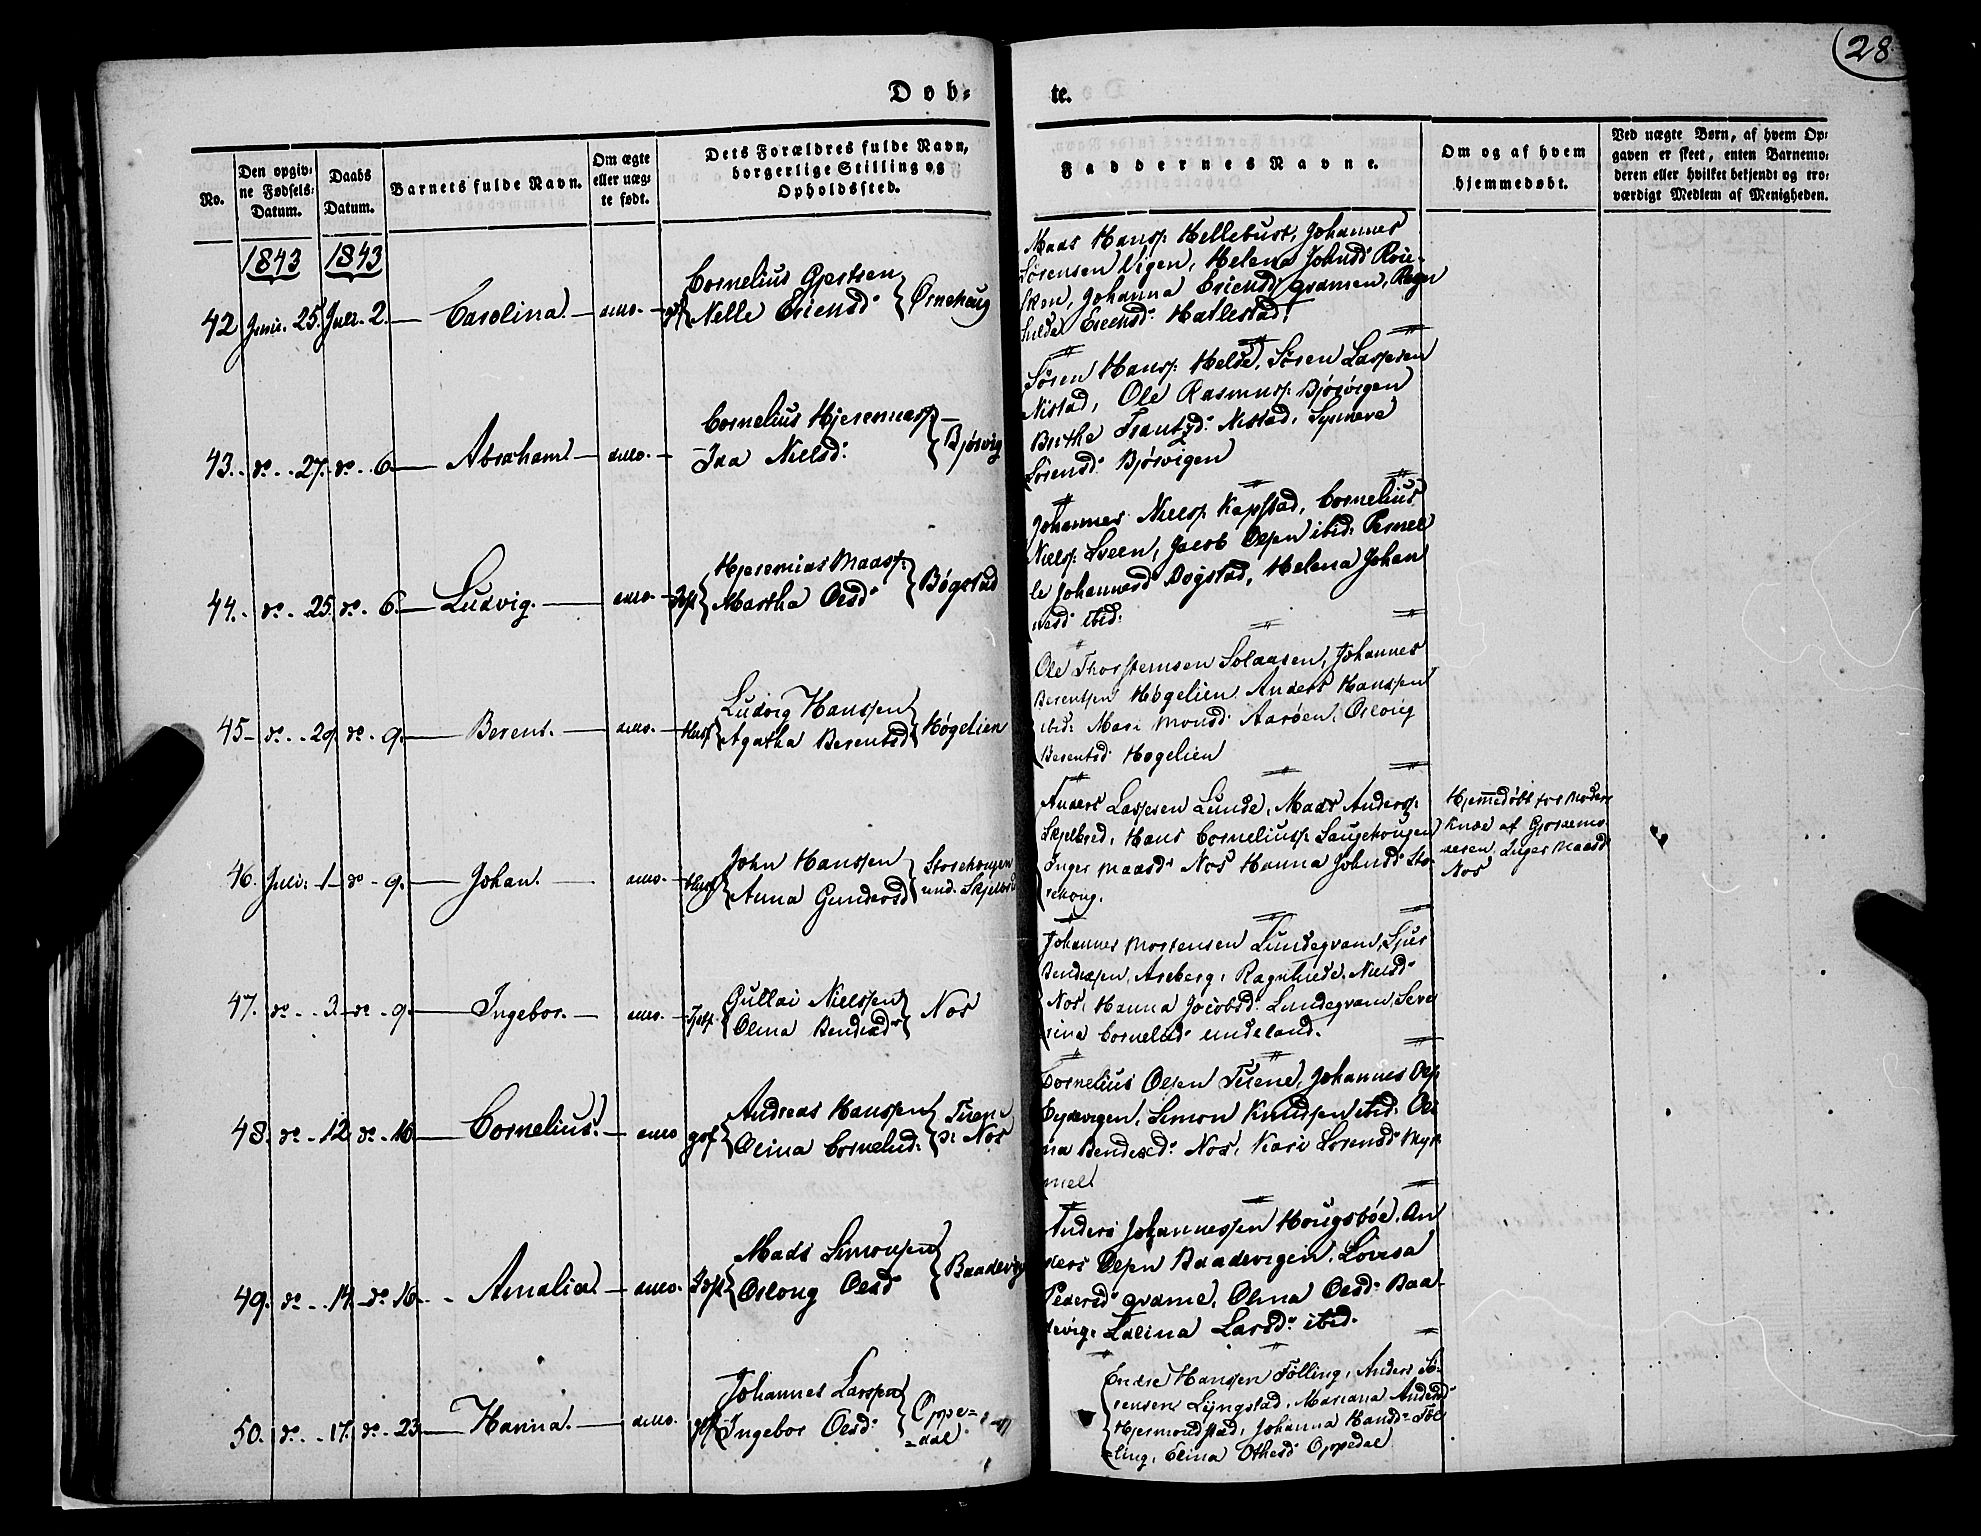 28
Døb=
te.
No.
Den opgiv=
ne Fødsels=
Datum.
Daabs
Datum.
Barnets fulde Navn.
Om ægte
eller uæg=
te født.
Dets Forældres fulde Navn,
borgerlige Stilling og
Opholdssted.
Faddernes Navne.
Om og af hvem
hjemmedøbt.
Ved uægte Børn, af hvem Op=
gaven er skeet, enten Barnemo=
deren eller hvilket bekjendt og tro=
værdigt Medlem af Menigheden.
1843
1843
42 Juni. 25. Juli. 2. Carolina
Cornelius Gjertsen
Nelle
Maas Hanss. Hellebust, Johannes
Sørensen Vigen, Helena Johnsd.
Johanna
Hatlestad.
43. do. 27. do. 6. Abraham
Cornelius
Ida Nielsd: Bjørvig
Søren Hanss. Helle, Søren Larssen
Nistad, Ole Rasmuss. Bjørvigen
Brithe Frantzd: Nistad, Synneva
Sørensd: Bjørvigen
44. do. 25. do. 6. Ludvig.
Hjeremias Maass.
Martha Olsd: Bøgstad
Johannes Nielss. Kapstad, Cornelius
Nielss. Sveen, Jacob Olsen ibid: Pernel
le Johannesd: Bøgstad, Helena Johan
nesd: ibid:
45 do. 29 do. 9. Berent.
Husf Ludvig Hanssen
Agatha Berentsd: Høgelien
Ole Thorstensen Solaasen, Johannes
Berentsen Høgelien Anders Hanssen
ibid: Mari Monsd: Aarøen, Osloug
Berentsd: Høgelien
46. Juli: 1 do. 9. Johan.
Husf John Hanssen
Anna Gundersd: Storehougen
und. Skjelbred
Anders Larssen Lunde, Maas Anderss.
Skjelbred, Hans Corneliuss. Saugehougen
Inger Maasd: Nos Hanna Johnsd: Sto=
rehoug.
Hjemmedøbt for Moders
Knæe af Gjordemo=
deren, Inger Maasd:
Nos
47. do. 3. do. 9. Ingebor.
Gullai Nielssen
Olina Bendixd: Nos
Johannes Mortensen Lundegvam, Sjur
Bendixsen, Aseberg, Ragnhilde, Nielsd:
Nos, Hanna Jacobsd: Lundegvam, Seve
rina Cornelsd: Undeland.
48. do. 12. do. 16. Cornelius.
Andreas Hanssen
Olina Cornelsd: Tuen
p: Nos
Cornelius Olsen Tuene, Johannes Ols.
Eydevigen, Simon Knudsen ibid: Oli
na Bendixd: Nos, Kari Sørensd:
mel
49. do. 14. do. 16. Amalia
Mads Simonsen
Oslong Olsd: Baadevig
Anders Johannessen Hougsbøe, An
ders Olsen Baadevigen, Lovisa
Pedersd: Qvame, Olina Olsd: Baa
devig, Larsd: ibid.
50. do. 17. do. 23. Hanna.
Johannes Larssen
Ingebor Olsd: Oppe=
=dal
Endre Hanssen Følling, Anders Sø=
rensen Lyngstad, Mariana Andersd:
Hjermondstad, Johanna Hansd: Føl
=ling, Elina Othesd: Oppedal